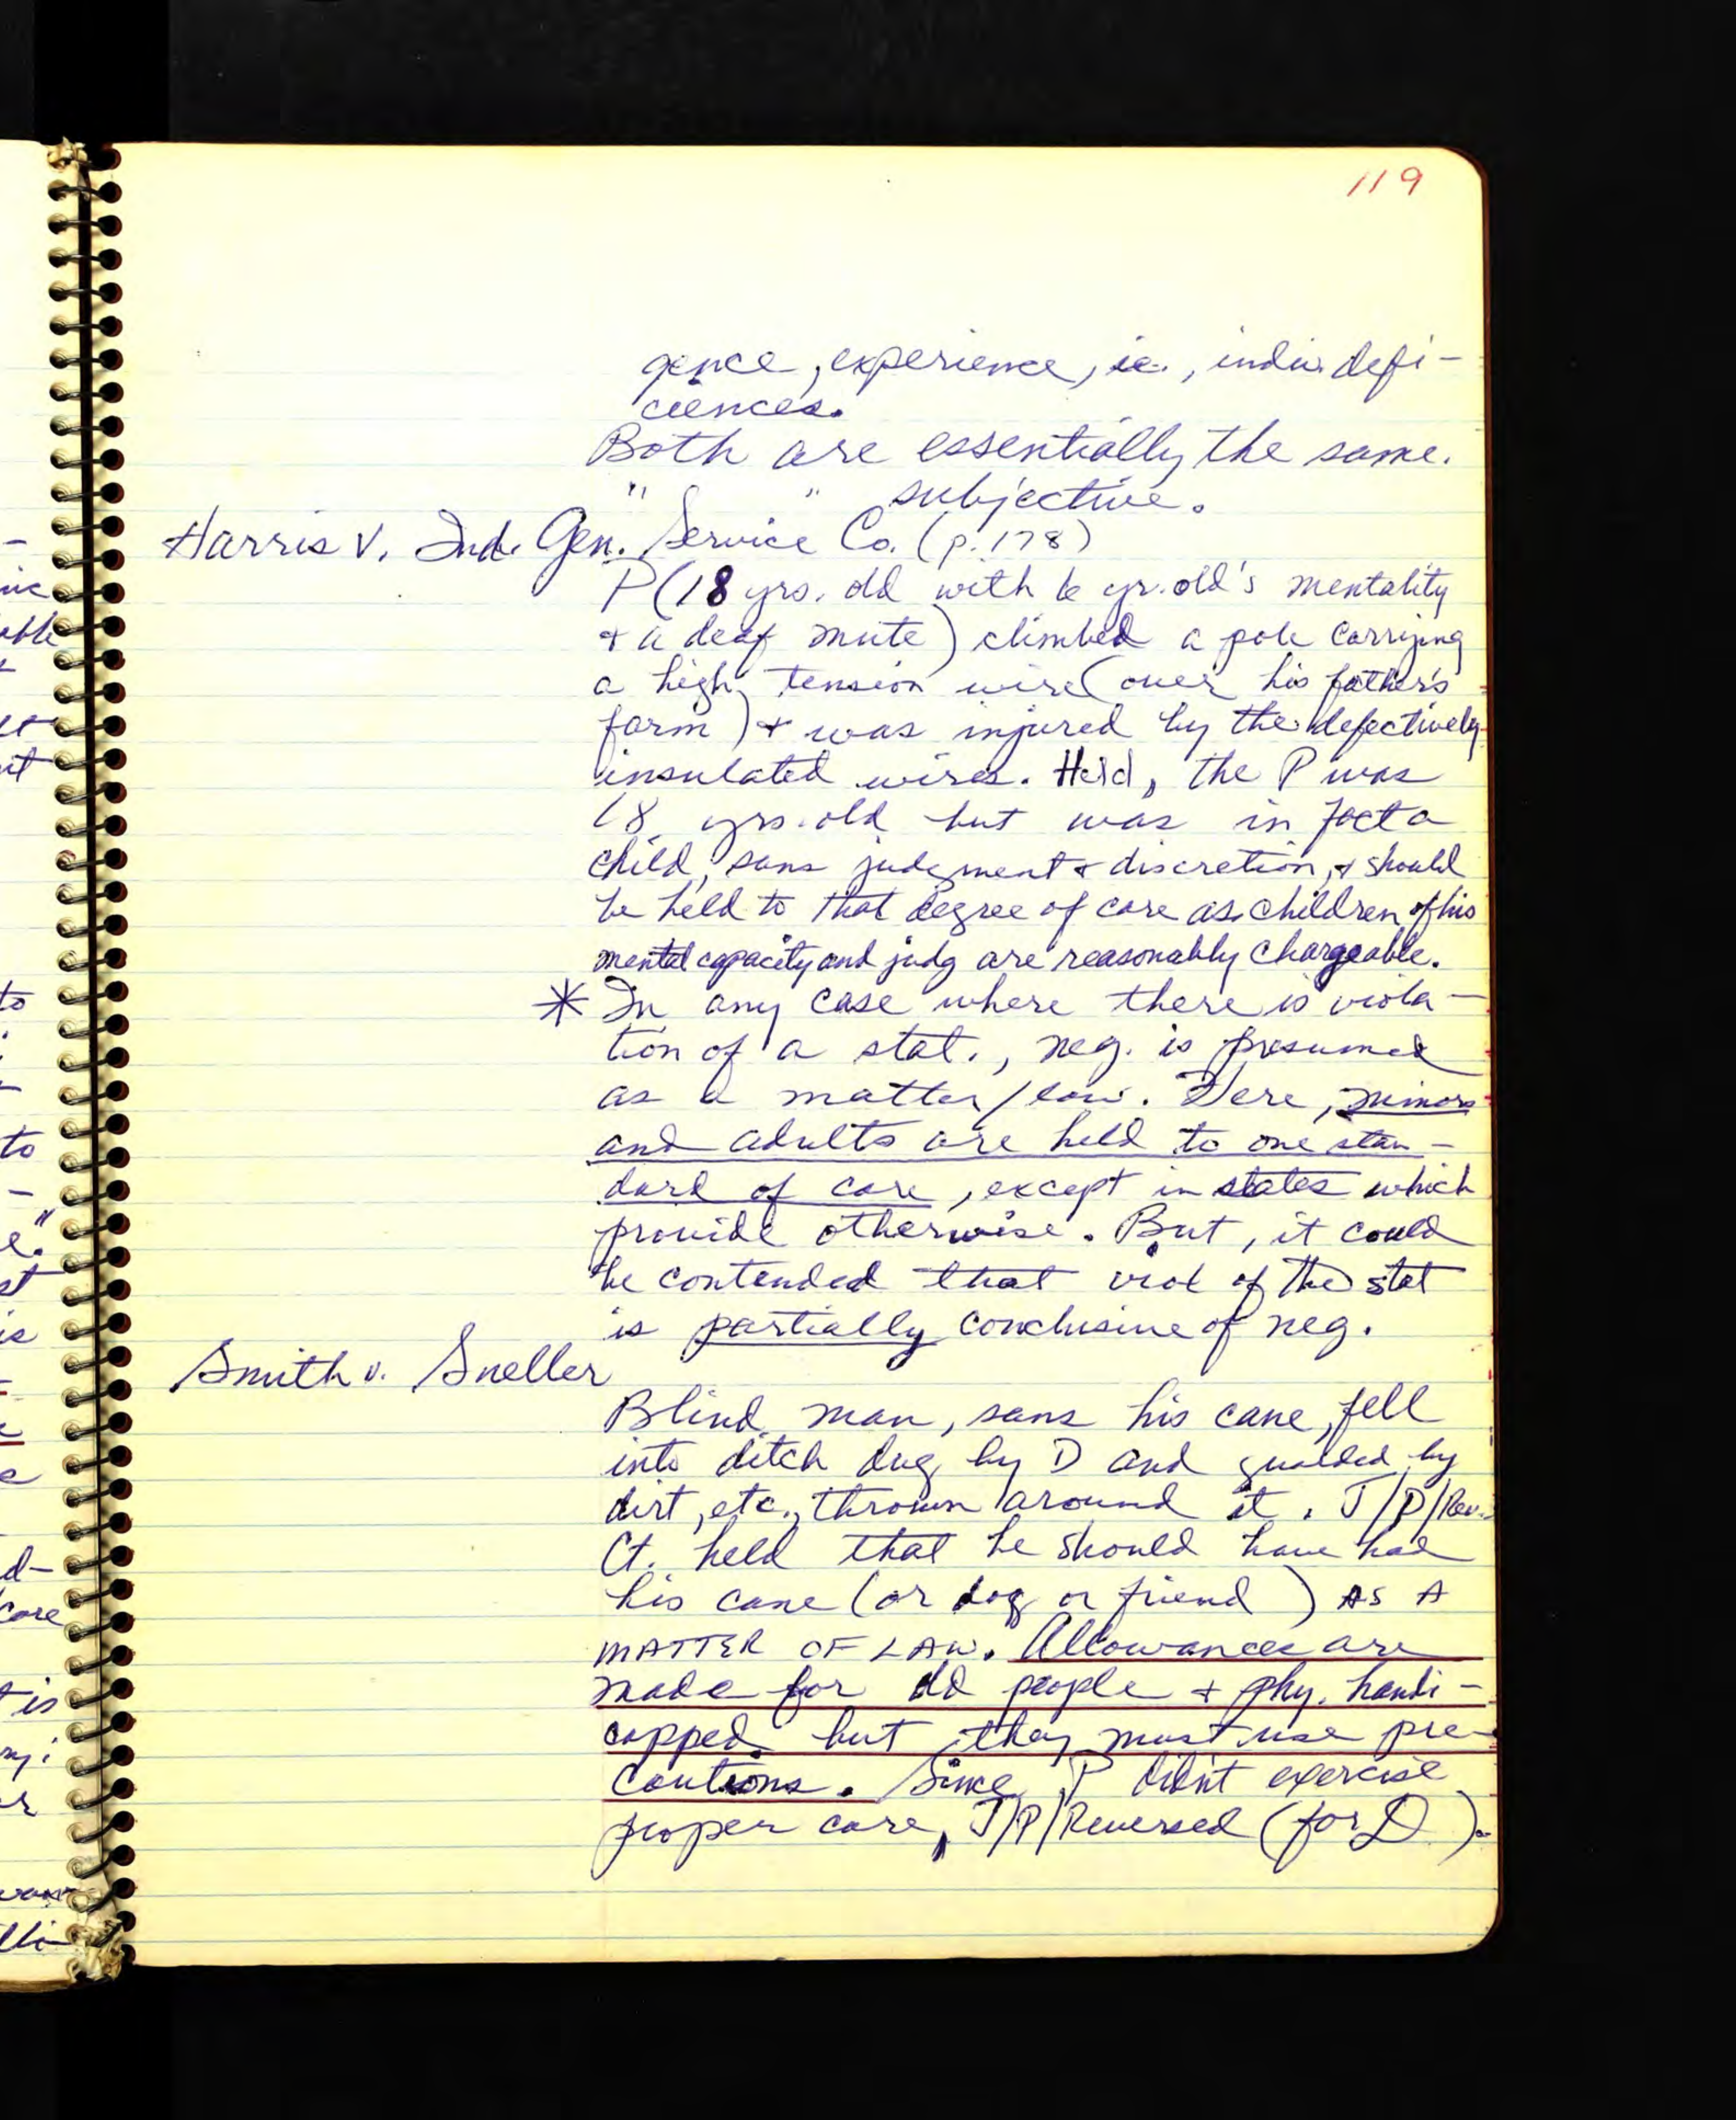 119
gence, experience, ie., indiv. defi-
ciences.
Both are essentially the same.
" " subjective.
Harris v. Ind. Gen. Service Co. (p. 178)
P (18 yrs. old with 6 yr. old's mentality
+ a deaf mute) climbed a pole carrying
a high tension wire (over his father's
farm) + was injured by the defectively
insulated wires. Held, the P was
18 yrs. old but was in fact a
child, sans judgment + discretion, + should
be held to that degree of care as children of his
mental capacity and judg are reasonably chargeable.
* In any case where there is viola-
tion of a stat., neg. is presumed
as a matter/law. Here, minors
and adults are held to one stan-
dard of care, except in states which
provide otherwise. But, it could
be contended that viol of the stat
is partially conclusive of neg.
Smith v. Sneller
Blind man, sans his cane, fell
into ditch dug by D and gualded by
dirt, etc., thrown around it. J/P/Rev.
Ct. held that he should have had
his cane (or dog or friend) AS A
MATTER OF LAW. Allowances are
made for old people + phy. handi-
capped but they must use pre-
cautions. Since P didn't exercise
proper care, J/P/Reversed (for D).